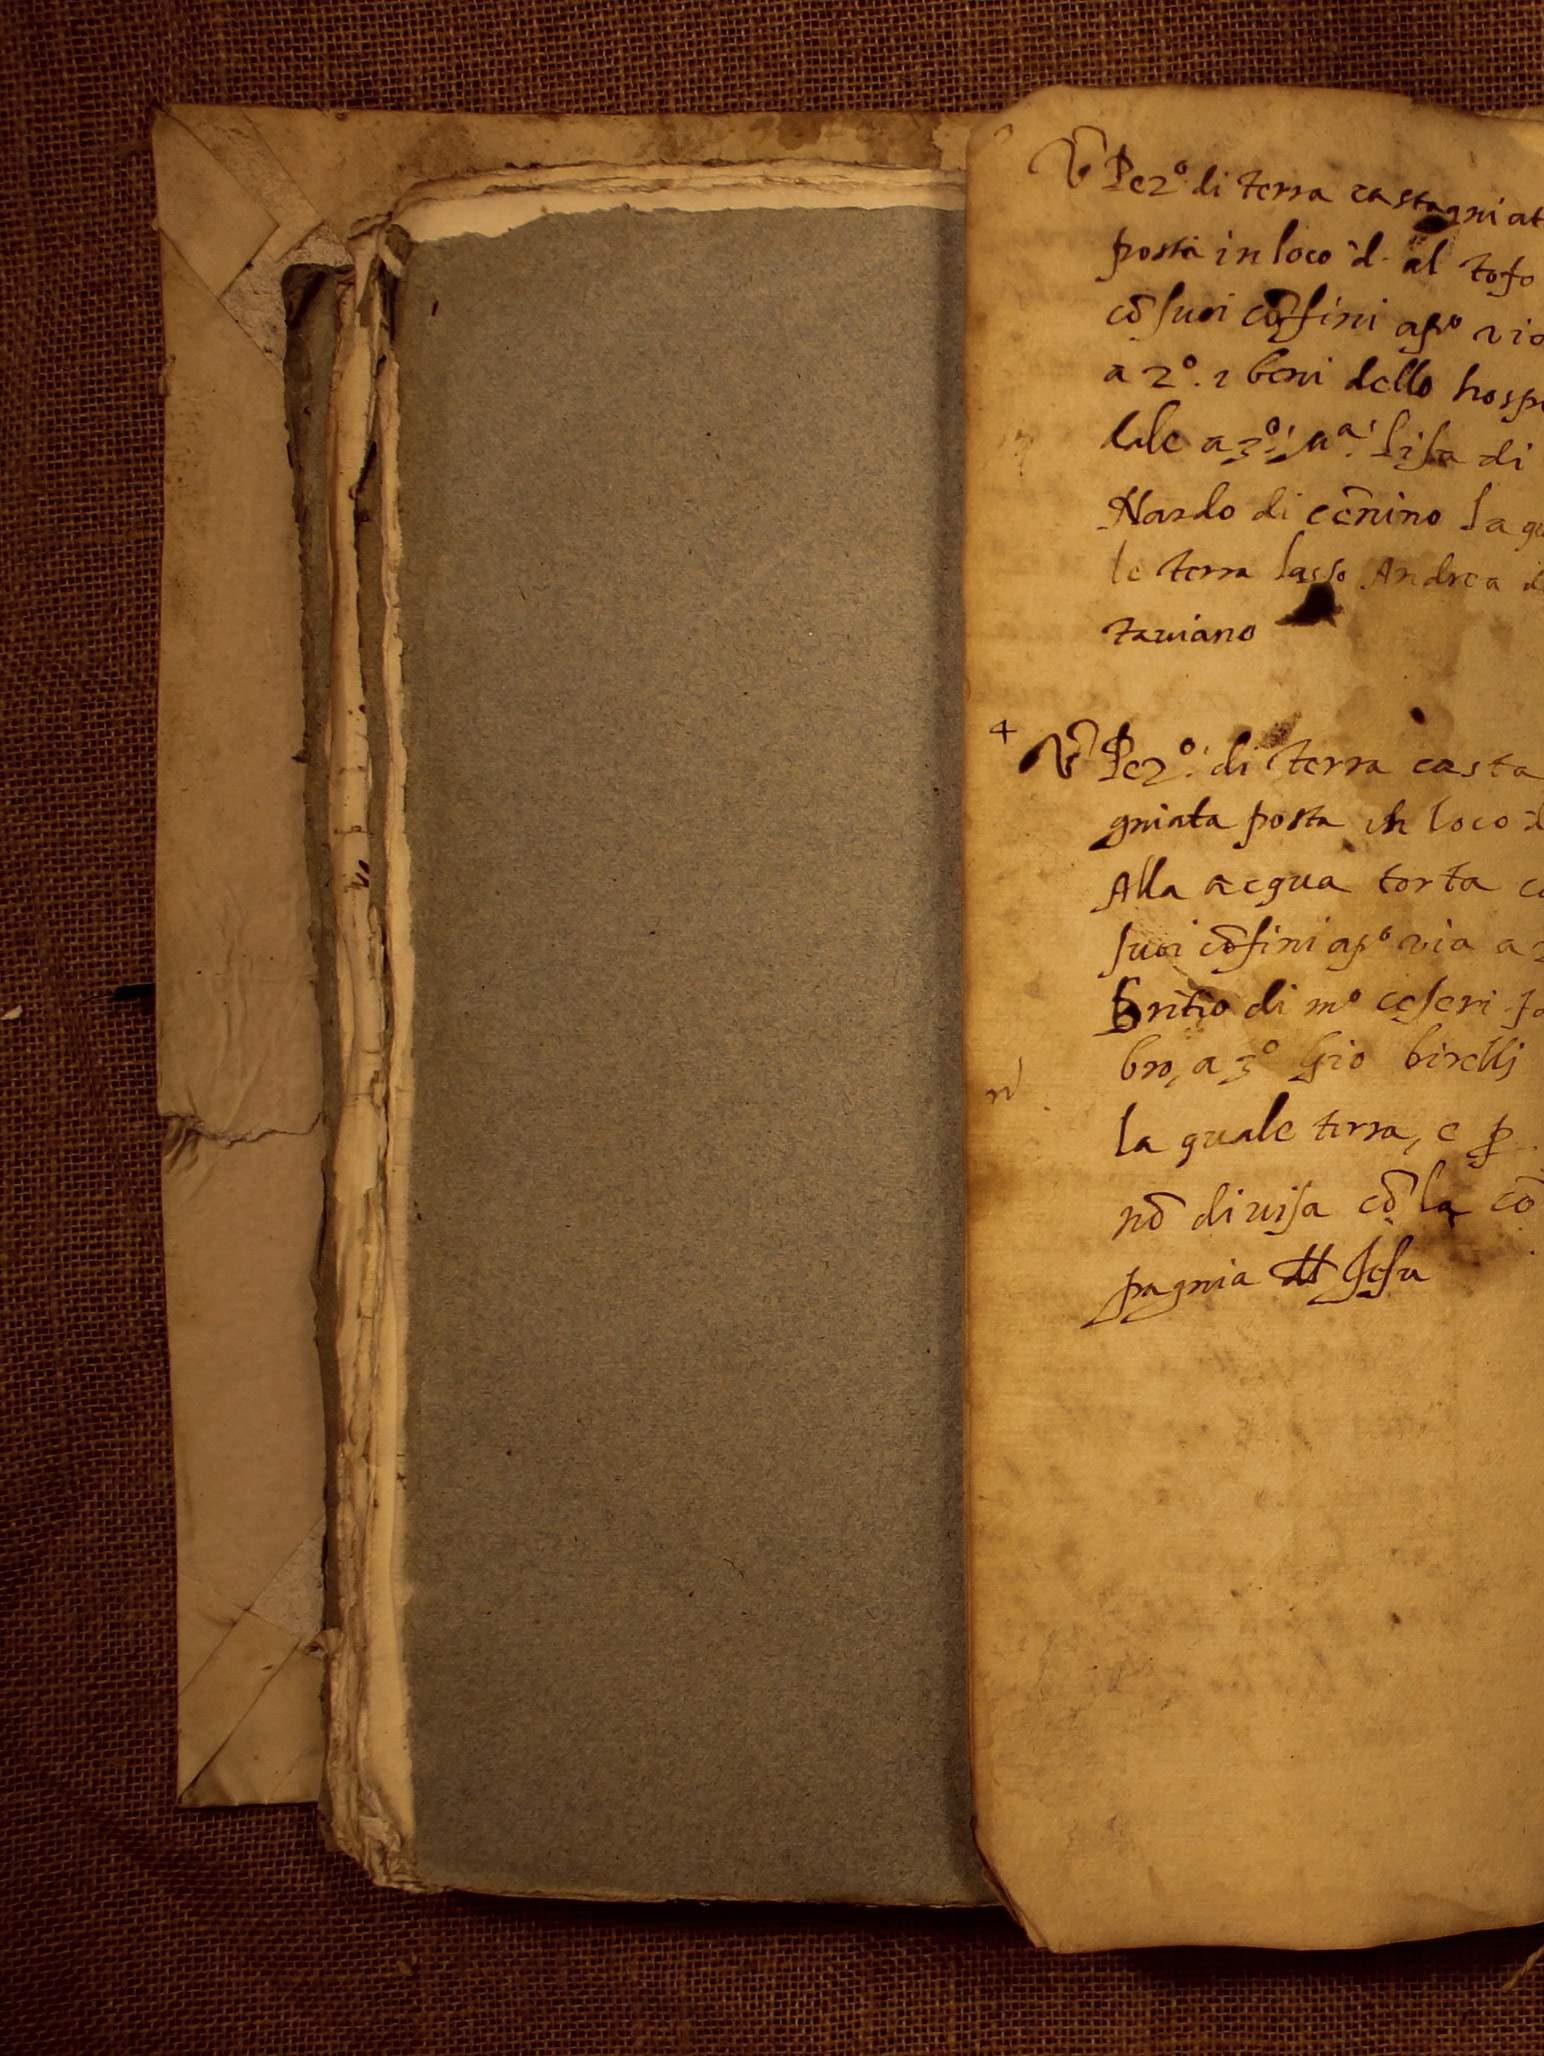 V Pez.º di terra castagniat
posta in loco d. al tofo
cō suoi cōfini a pº via
a 2º. i beni dello hospe
dale a 3º: Mª. Lisa di
Nardo di cēnino la qu
le terra lasso Andrea d
taviano
4 V Pez.º di terra casta
gniata posta in loco d
Alla acqua torta cō
suoi cōfini a pº via a 2
Britio di mº ceseri fa
bro, a 3º Gio birelli
la quale terra, e p
nō divisa cō la cō
pagnia del Jesu